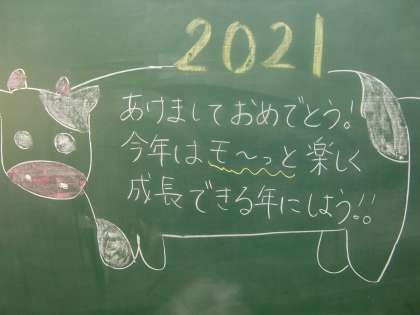 2021
あけましておめでとう!
今年はモ〜っと楽しく
成長できる年にしよう!!